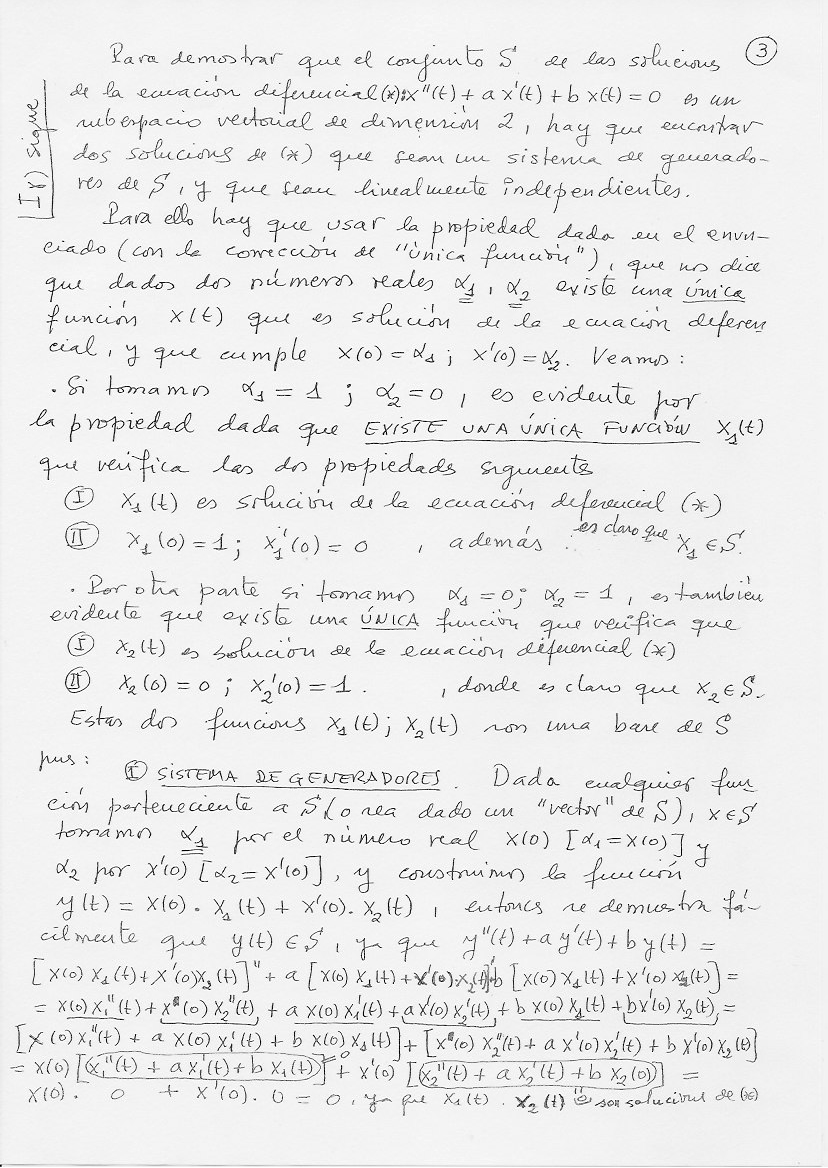 ③
Para demostrar que el conjunto S de las soluciones
de la ecuación diferencial (*): x''(t) + a x'(t) + b x(t) = 0 es un
subespacio vectorial de dimensión 2, hay que encontrar
dos soluciones de (*) que sean un sistema de generado-
res de S, y que sean linealmente independientes.
Iγ) sigue
Para ello hay que usar la propiedad dada en el enun-
ciado (con la corrección de "única función"), que nos dice
que dados dos números reales α₁, α₂ existe una única
función x(t) que es solución de la ecuación diferen
cial, y que cumple x(0) = α₁ ; x'(0) = α₂. Veamos :
. Si tomamos α₁ = 1 ; α₂ = 0, es evidente por
la propiedad dada que EXISTE UNA ÚNICA FUNCIÓN x₁(t)
que verifica las dos propiedades siguientes
Ⓘ x₁(t) es solución de la ecuación diferencial (*)
Ⓘⓘ x₁(0) = 1 ; x₁'(0) = 0 , además es claro que x₁ ∈ S.
. Por otra parte si tomamos α₁ = 0 ; α₂ = 1, es también
evidente que existe una ÚNICA función que verifica que
Ⓘ x₂(t) es solución de la ecuación diferencial (*)
Ⓘⓘ x₂(0) = 0 ; x₂'(0) = 1. , donde es claro que x₂ ∈ S.
Estas dos funciones x₁(t) ; x₂(t) son una base de S
pues :
Ⓘ SISTEMA DE GENERADORES. Dada cualquier fun
ción perteneciente a S (o sea dado un "vector" de S), x ∈ S
tomamos α₁ por el número real x(0) [α₁ = x(0)] y
α₂ por x'(0) [α₂ = x'(0)], y construimos la función
y(t) = x(0) . x₁(t) + x'(0) . x₂(t) , entonces se demuestra fá-
cilmente que y(t) ∈ S, ya que y''(t) + a y'(t) + b y(t) =
[x(0) x₁(t) + x'(0) x₂(t)]'' + a [x(0) x₁(t) + x'(0) . x₂(t)]' + b [x(0) x₁(t) + x'(0) x₂(t)] =
= x(0) x₁''(t) + x'(0) x₂''(t) + a x(0) x₁'(t) + a x'(0) x₂'(t) + b x(0) x₁(t) + b x'(0) x₂(t) =
[x(0) x₁''(t) + a x(0) x₁'(t) + b x(0) x₁(t)] + [x'(0) x₂''(t) + a x'(0) x₂'(t) + b x'(0) x₂(t)]
= x(0) [x₁''(t) + a x₁'(t) + b x₁(t)] = 0 + x'(0) [x₂''(t) + a x₂'(t) + b x₂(0)] =
x(0) . 0 + x'(0) . 0 = 0, ya que x₁(t) . x₂(t) son soluciones de (*)